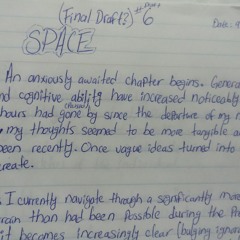 (Final Draft? #6
Date: 9
SPACE
An anxiously awaited chapter begins. General
nd cognitive ability have increased noticeably
hours had gone by since the departure of my
my thoughts seemed to be more tangible a
been recently. Once vague ideas turned into
create.
I currently navigate through a significantly more
rain than had been possible during the
it becomes increasingly clear (bulging ignor